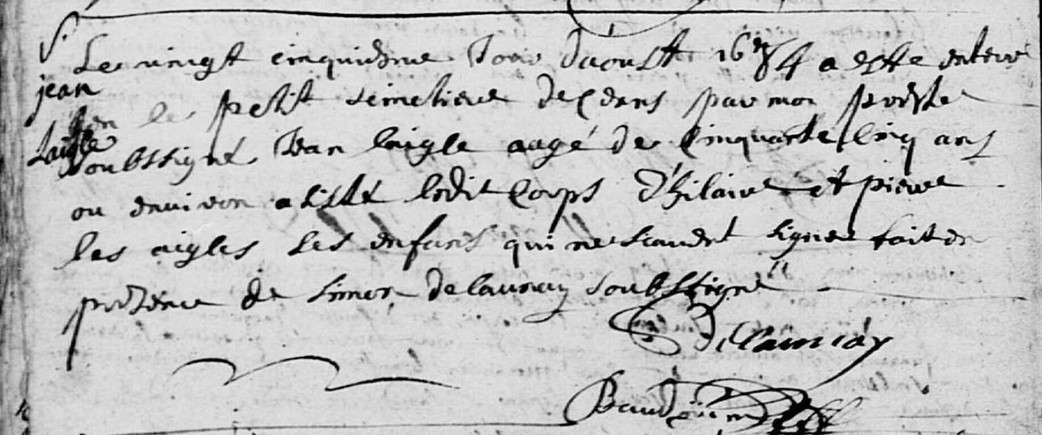 S.
jean
Laigle
Le vingt cinquiesme Jour d'aoust 1684 a este enterré
en le petit simetiere de ceans par moy prestre
soubssigné Jean laigle aagé de cinquante cinq ans
ou environ assisté ledit corps d'hilaire et pierre
les aigles ses enfans qui ne sçavent signer fait en
presence de simon delaunay soubssigné
Delaunay
Baudouin